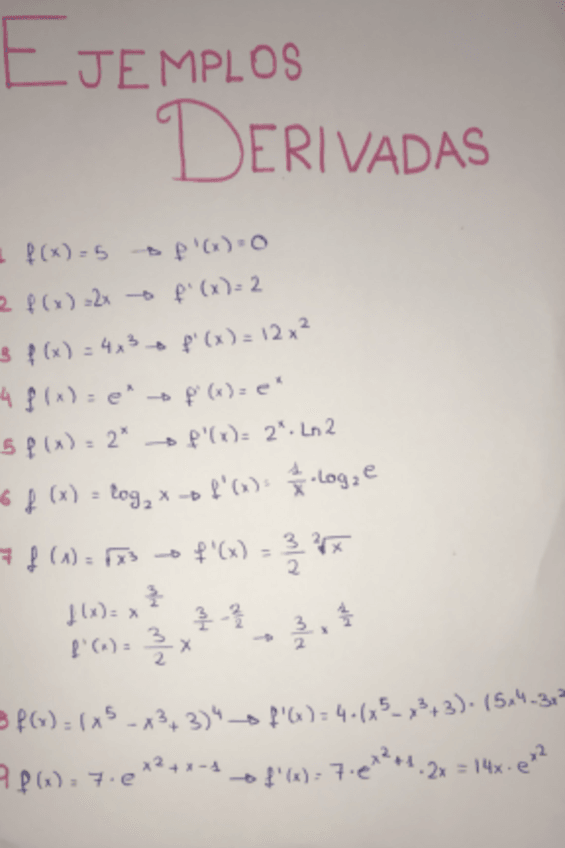 EJEMPLOS
DERIVADAS
1 f(x)=5 → f'(x)=0
2 f(x)=2x → f'(x)=2
3 f(x) = 4x³ → f'(x) = 12x²
4 f(x) = eˣ → f'(x) = eˣ
5 f(x) = 2ˣ → f'(x) = 2ˣ · Ln2
6 f(x) = log₂ x → f'(x) = 1/x · log₂ e
7 f(x) = √x³ → f'(x) = 3/2 ²√x
f(x) = x^(3/2)
f'(x) = 3/2 x^(3/2 - 2/2) → 3/2 x^(1/2)
8 f(x) = (x⁵ - x³ + 3)⁴ → f'(x) = 4·(x⁵ - x³ + 3)·(5x⁴ - 3x²
9 f(x) = 7·e^(x²+x-1) → f'(x) = 7·e^(x²+1)·2x = 14x·e^(x²)